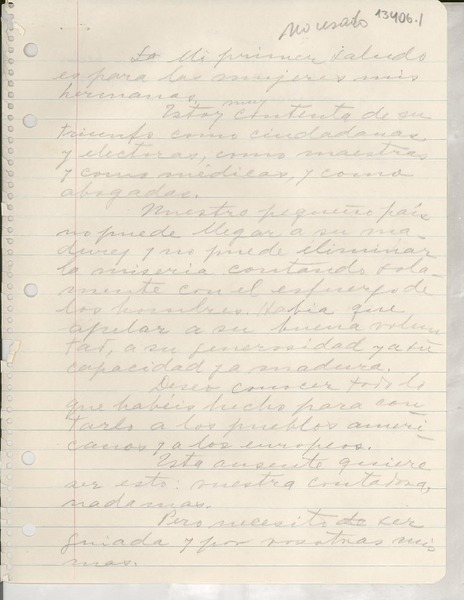 No usado 13406.1
La Mi primer saludo
es para las mujeres mis
hermanas.
Estoy muy contenta de su
triunfo como ciudadanas
y electoras, como maestras
y como médicas, y como
abogadas.
Nuestro pequeño país
no puede llegar a su ma-
durez y no puede eliminar
la miseria contando sola-
mente con el esfuerzo de
los hombres. Había que
apelar a su buena volun
tad, a su generosidad y a su
capacidad ya madura.
Deseo conocer todo lo
que habéis hecho para con-
tarlo a los pueblos ameri-
canos y a los europeos.
Esta ausente quiere
ser esto: vuestra contadora,
nada mas.
Pero necesito de ser
guiada y por vosotras mis-
mas.